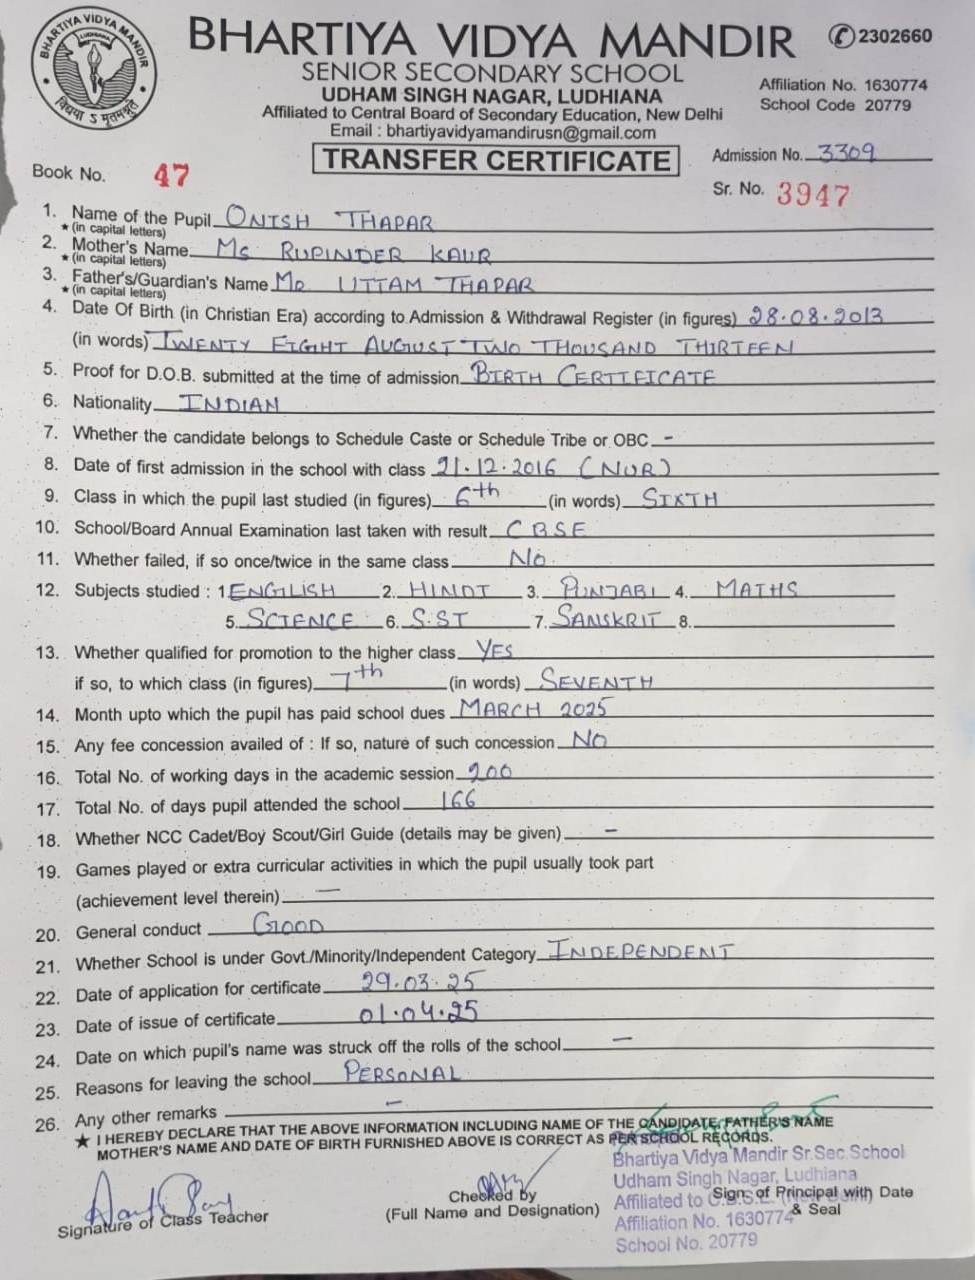 BHARTIYA VIDYA MANDIR
LUDHIANA
विद्यया ऽ मृतमश्नुते
BHARTIYA VIDYA MANDIR
✆2302660
SENIOR SECONDARY SCHOOL
UDHAM SINGH NAGAR, LUDHIANA
Affiliation No. 1630774
School Code 20779
Affiliated to Central Board of Secondary Education, New Delhi
Email : bhartiyavidyamandirusn@gmail.com
TRANSFER CERTIFICATE
Admission No. 3309
Book No. 47
Sr. No. 3947
1. Name of the Pupil ONISH THAPAR
★ (in capital letters)
2. Mother's Name MS RUPINDER KAUR
★ (in capital letters)
3. Father's/Guardian's Name MR UTTAM THAPAR
★ (in capital letters)
4. Date Of Birth (in Christian Era) according to Admission & Withdrawal Register (in figures) 28.08.2013
(in words) TWENTY EIGHT AUGUST TWO THOUSAND THIRTEEN
5. Proof for D.O.B. submitted at the time of admission BIRTH CERTIFICATE
6. Nationality INDIAN
7. Whether the candidate belongs to Schedule Caste or Schedule Tribe or OBC -
8. Date of first admission in the school with class 21.12.2016 (NUR)
9. Class in which the pupil last studied (in figures) 6th (in words) SIXTH
10. School/Board Annual Examination last taken with result CBSE
11. Whether failed, if so once/twice in the same class NO.
12. Subjects studied : 1 ENGLISH 2. HINDI 3. PUNJABI 4. MATHS
5. SCIENCE 6. S.ST 7. SANSKRIT 8.
13. Whether qualified for promotion to the higher class YES
if so, to which class (in figures) 7th (in words) SEVENTH
14. Month upto which the pupil has paid school dues MARCH 2025
15. Any fee concession availed of : If so, nature of such concession NO
16. Total No. of working days in the academic session 200
17. Total No. of days pupil attended the school 166
18. Whether NCC Cadet/Boy Scout/Girl Guide (details may be given) -
19. Games played or extra curricular activities in which the pupil usually took part
(achievement level therein) —
20. General conduct GOOD
21. Whether School is under Govt./Minority/Independent Category INDEPENDENT
22. Date of application for certificate 29.03.25
23. Date of issue of certificate 01.04.25
24. Date on which pupil's name was struck off the rolls of the school —
25. Reasons for leaving the school PERSONAL
26. Any other remarks -
★ I HEREBY DECLARE THAT THE ABOVE INFORMATION INCLUDING NAME OF THE CANDIDATE, FATHER'S NAME
MOTHER'S NAME AND DATE OF BIRTH FURNISHED ABOVE IS CORRECT AS PER SCHOOL RECORDS.
Bhartiya Vidya Mandir Sr.Sec.School
Udham Singh Nagar, Ludhiana
Affiliated to C.B.S.E. (New Delhi)
Affiliation No. 1630774
School No. 20779
Signature of Class Teacher
Checked by
(Full Name and Designation)
Sign. of Principal with Date
& Seal